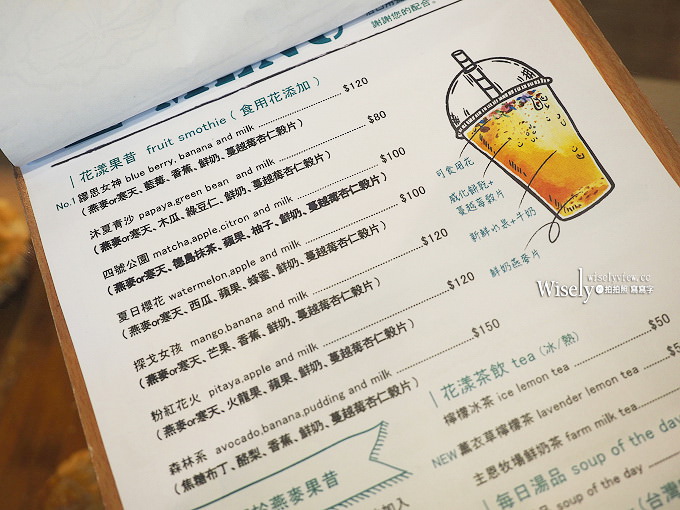 謝謝您的配合。
MENU
花漾果昔 fruit smothie ( 食用花添加 )
No.1 繆思女神 blue berry, banana and milk $120
(燕麥or寒天、藍莓、香蕉、鮮奶、蔓越莓杏仁穀片)
沐夏青沙 papaya,green bean and milk $80
(燕麥or寒天、木瓜、綠豆仁、鮮奶、蔓越莓杏仁穀片)
四號公園 matcha,apple,citron and milk $100
(燕麥or寒天、德島抹茶、蘋果、柚子、鮮奶、蔓越莓杏仁穀片)
夏日櫻花 watermelon,apple and milk $100
(燕麥or寒天、西瓜、蘋果、蜂蜜、鮮奶、蔓越莓杏仁穀片)
探戈女孩 mango,banana and milk $120
(燕麥or寒天、芒果、香蕉、鮮奶、蔓越莓杏仁穀片)
粉紅花火 pitaya,apple and milk $120
(燕麥or寒天、火龍果、蘋果、鮮奶、蔓越莓杏仁穀片)
森林系 avocado,banana,pudding and milk $150
(焦糖布丁、酪梨、香蕉、鮮奶、蔓越莓杏仁穀片)
燕麥果昔
加入
可食用花
威化餅乾+
蔓越莓穀片
新鮮水果+牛奶
鮮奶燕麥片
wiselyview.cc
Wisely 拍拍照 寫寫字
花漾茶飲 tea (冰/熱)
檸檬冰茶 ice lemon tea $50
NEW 薰衣草檸檬茶 lavender lemon tea
主恩牧場鮮奶茶 farm milk tea
每日湯品 soup of the day
湯品 soup of the day
(台灣